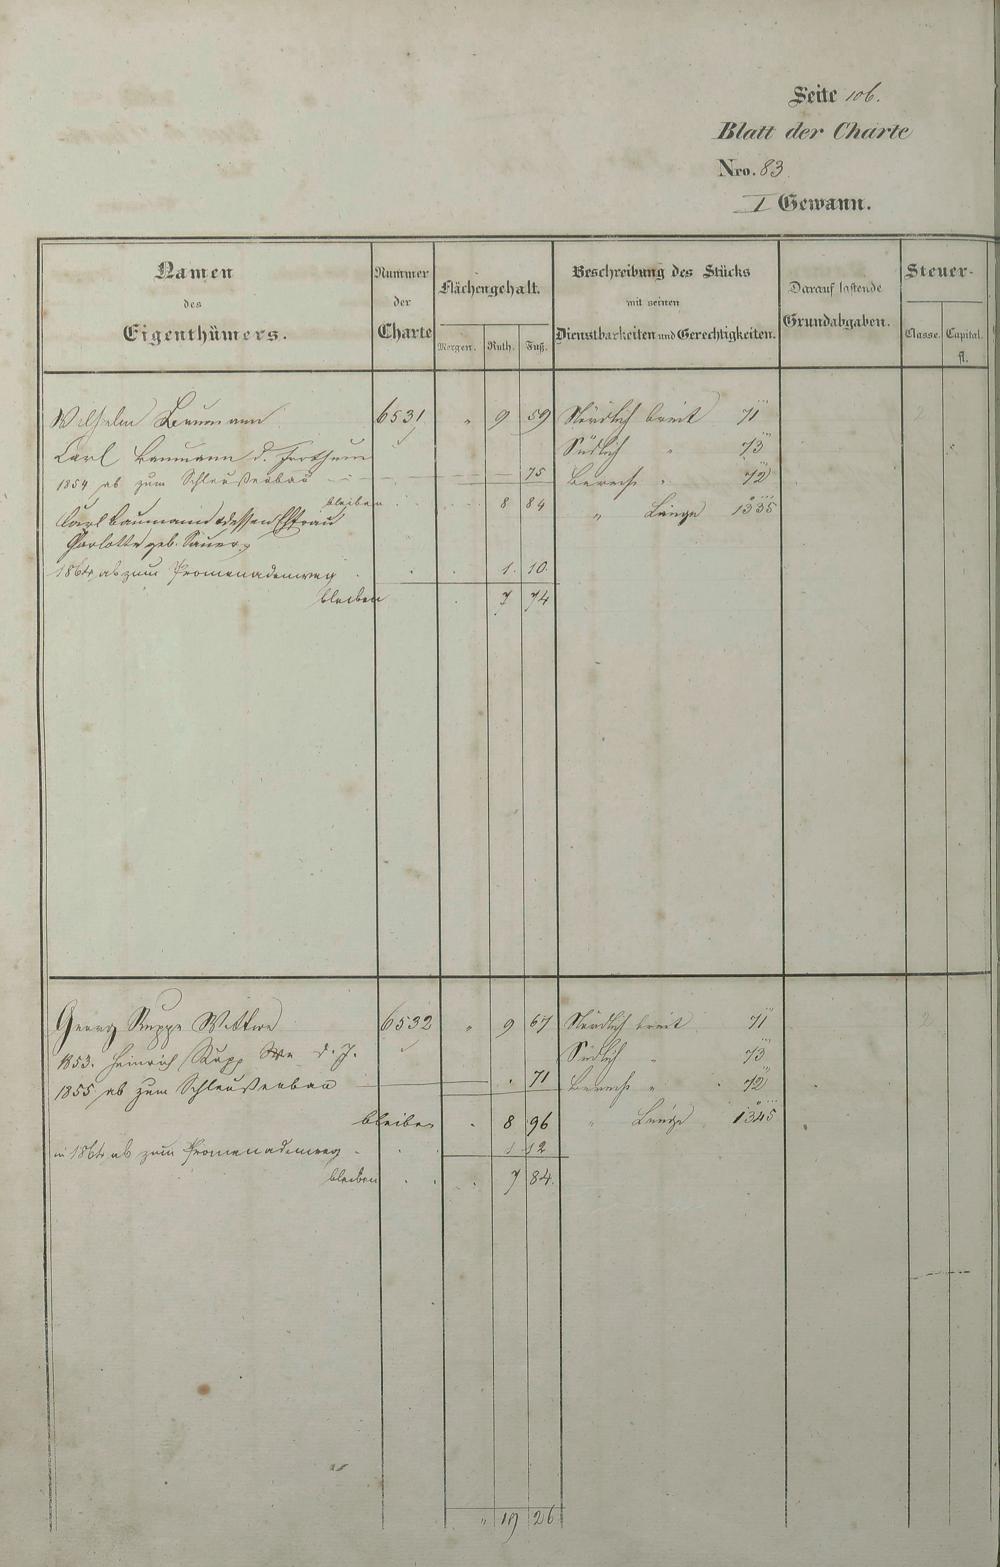 Seite 106.
Blatt der Charte
Nro. 83.
I Gewann.
Namen des Eigenthümers.
Nummer der Charte
Flächengehalt.
Morgen. Ruth. Fuß.
Beschreibung des Stücks mit seinen Dienstbarkeiten und Gerechtigkeiten.
Darauf lastende Grundabgaben.
Steuer-
Classe. Capital. fl.
Wilhelm Baumann 6531 " 9 59 Nördlich breit 71'''
Carl Baumann d. Südlich " 73'''
1854 ab zum Schleußenbau 75 Berech " 72'''
bleiben 8 84 " Länge 1335
Carl Baumann & dessen Ehefrau
Charlotte geb. Sauer
1864 ab zum Promenadenweg 1. 10.
bleiben 7 74
Georg Rupps Wittwe 6532 " 9 67 Nördlich breit 71'''
1853. Heinrich Rupp d. J. Südlich " 73'''
1855 ab zum Schleußenbau 71 Berech " 72'''
bleiben 8 96 " Länge 1345
in 1864 ab zum Promenadenweg 1 12
bleiben 7 84.
" 19 26